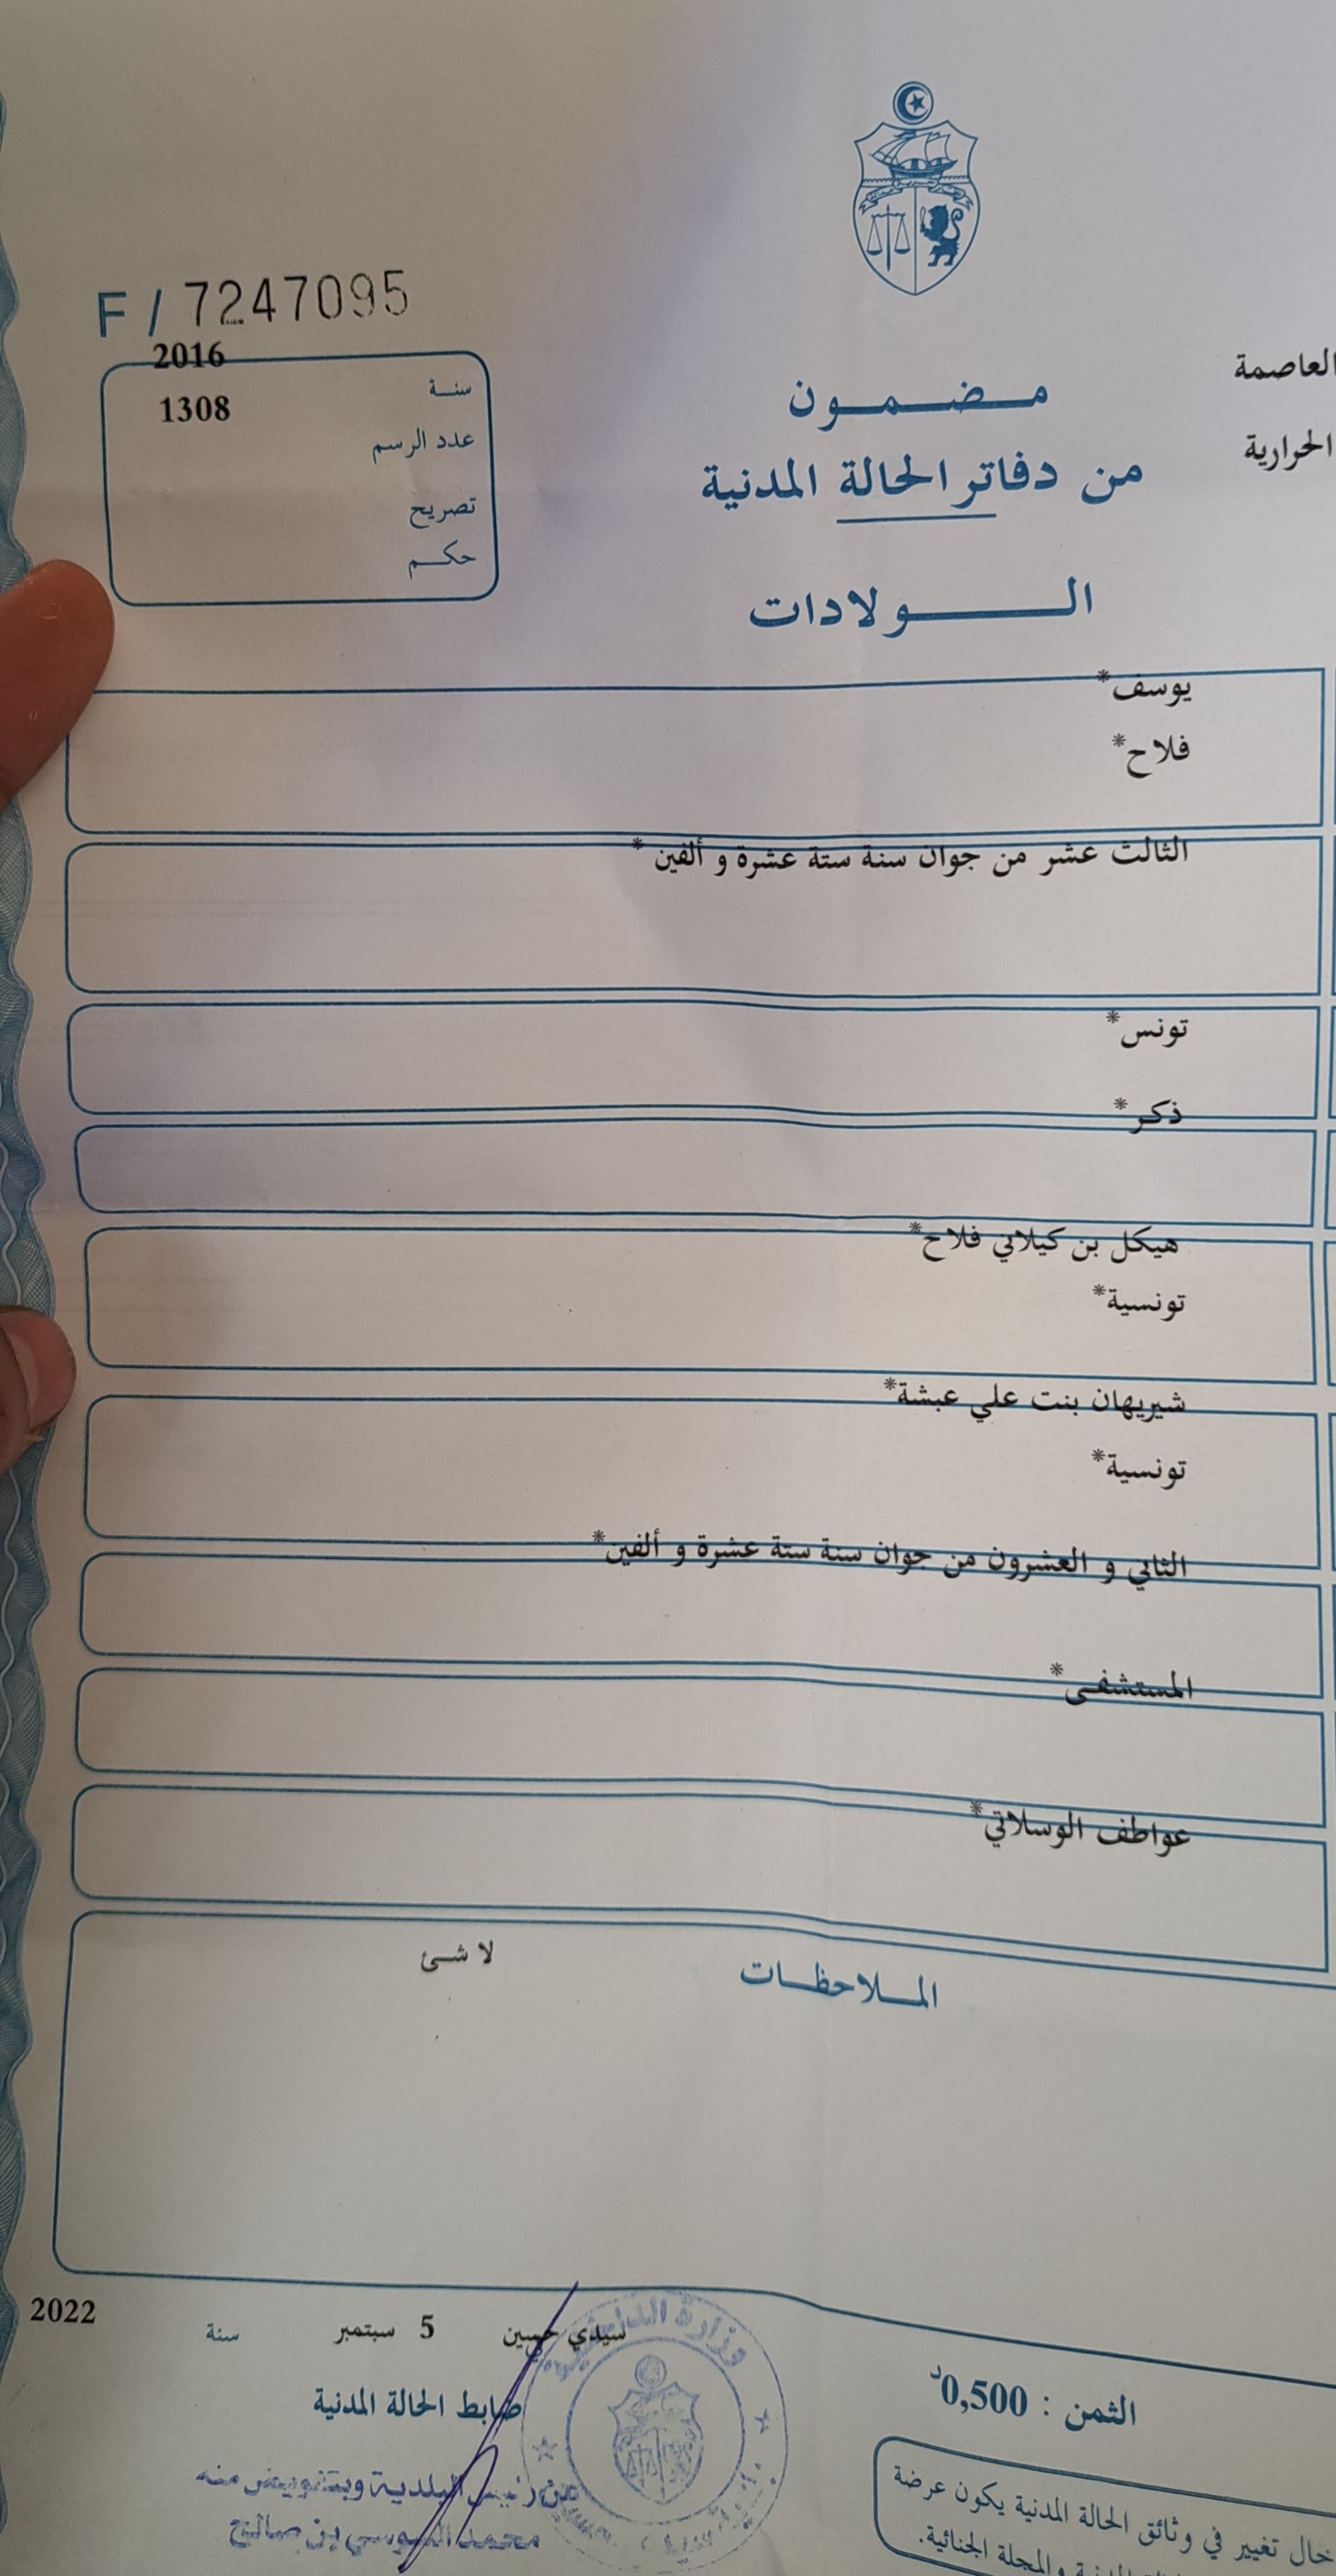 F / 7247095
2016
سنة
1308
عدد الرسم
تصريح
حكم
العاصمة
الحرارية
مضمون
من دفاتر الحالة المدنية
الولادات
يوسف*
فلاح*
الثالث عشر من جوان سنة ستة عشرة و ألفين *
تونس*
ذكر*
هيكل بن كيلاني فلاح*
تونسية*
شيريهان بنت علي عبشة*
تونسية*
الثاني و العشرون من جوان سنة ستة عشرة و ألفين*
المستشفى*
عواطف الوسلاتي*
الملاحظات
لا شئ
سيدي حسين 5 سبتمبر سنة 2022
ضابط الحالة المدنية
عن رئيس البلدية وبتفويض منه
محمد السوسي بن صالح
وزارة الداخلية
الثمن : 0,500د
خال تغيير في وثائق الحالة المدنية يكون عرضة
المدنية والمجلة الجنائية.